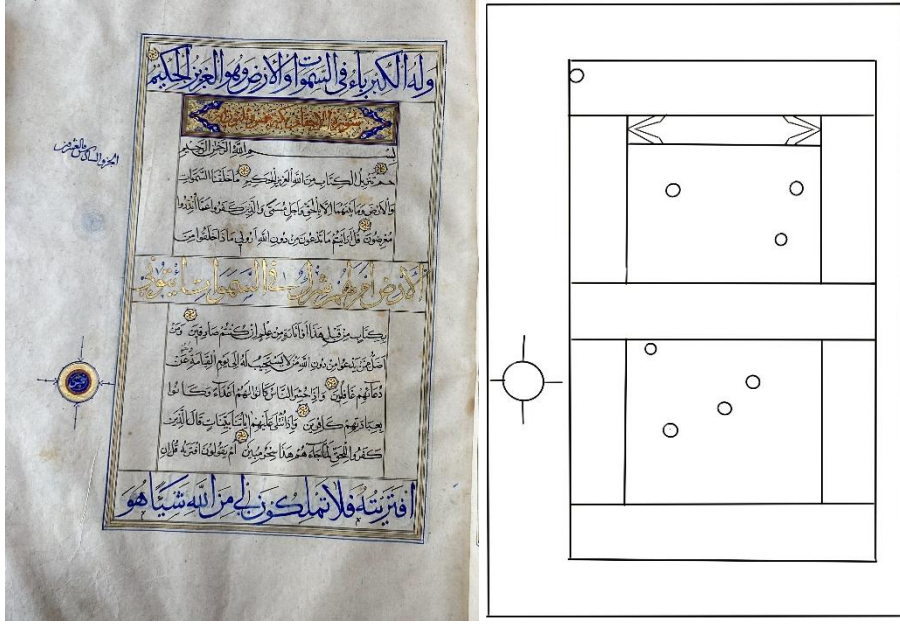 وله الكبرياء في السموات والارض وهو العزيز الحكيم
بسم الله الرحمن الرحيم
حم تنزيل الكتاب من الله العزيز الحكيم ما خلقنا السموات
والارض وما بينهما الا بالحق واجل مسمى والذين كفروا عما انذروا
معرضون قل ارايتم ما تدعون من دون الله اروني ماذا خلقوا من
الارض ام لهم شرك في السموات ايتوني
بكتاب من قبل هذا او اثارة من علم ان كنتم صادقين ومن
اضل ممن يدعوا من دون الله من لا يستجيب له الى يوم القيامة وهم عن
دعائهم غافلون واذا حشر الناس كانوا لهم اعداء وكانوا
بعبادتهم كافرين واذا تتلى عليهم اياتنا بينات قال الذين
كفروا للحق لما جاءهم هذا سحر مبين ام يقولون افتريه قل ان
افتريته فلا تملكون لي من الله شيئا هو